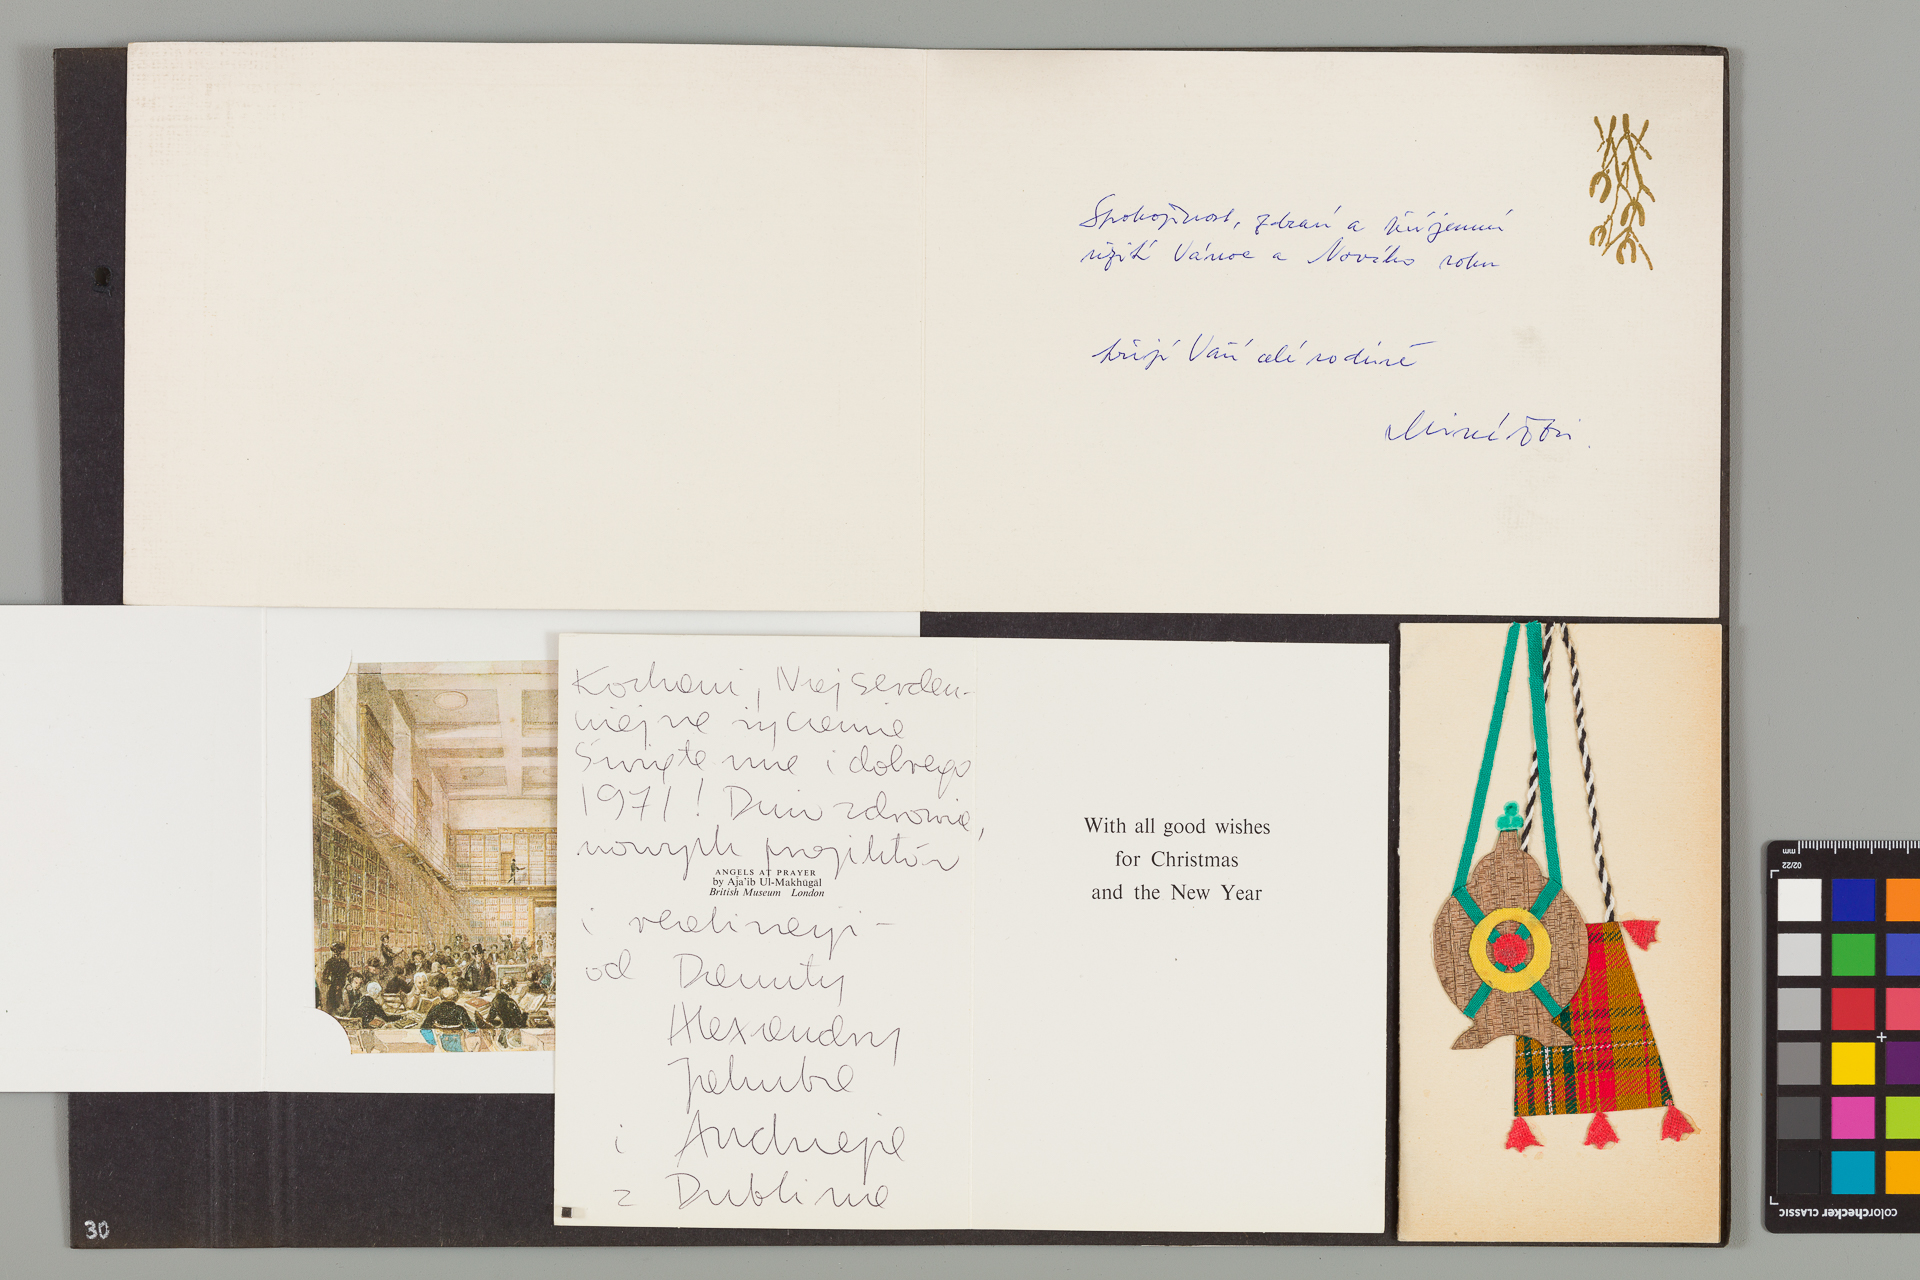 Spokojnost, zdraví a příjemné
užití Vánoc a Nového roku
přejí Vaší celé rodině
Kochani, Najserdecz-
niejsze życzenia
Świąteczne i dobrego
1971! Dużo zdrowia,
nowych projektów
ANGELS AT PRAYER
by Aja'ib Ul-Makhūgāl
British Museum London
i realizacji –
od Danuty
Alexandry
Jakuba
i Andrzeja
z Dublina
With all good wishes
for Christmas
and the New Year
30
mm
02/22
colorchecker CLASSIC